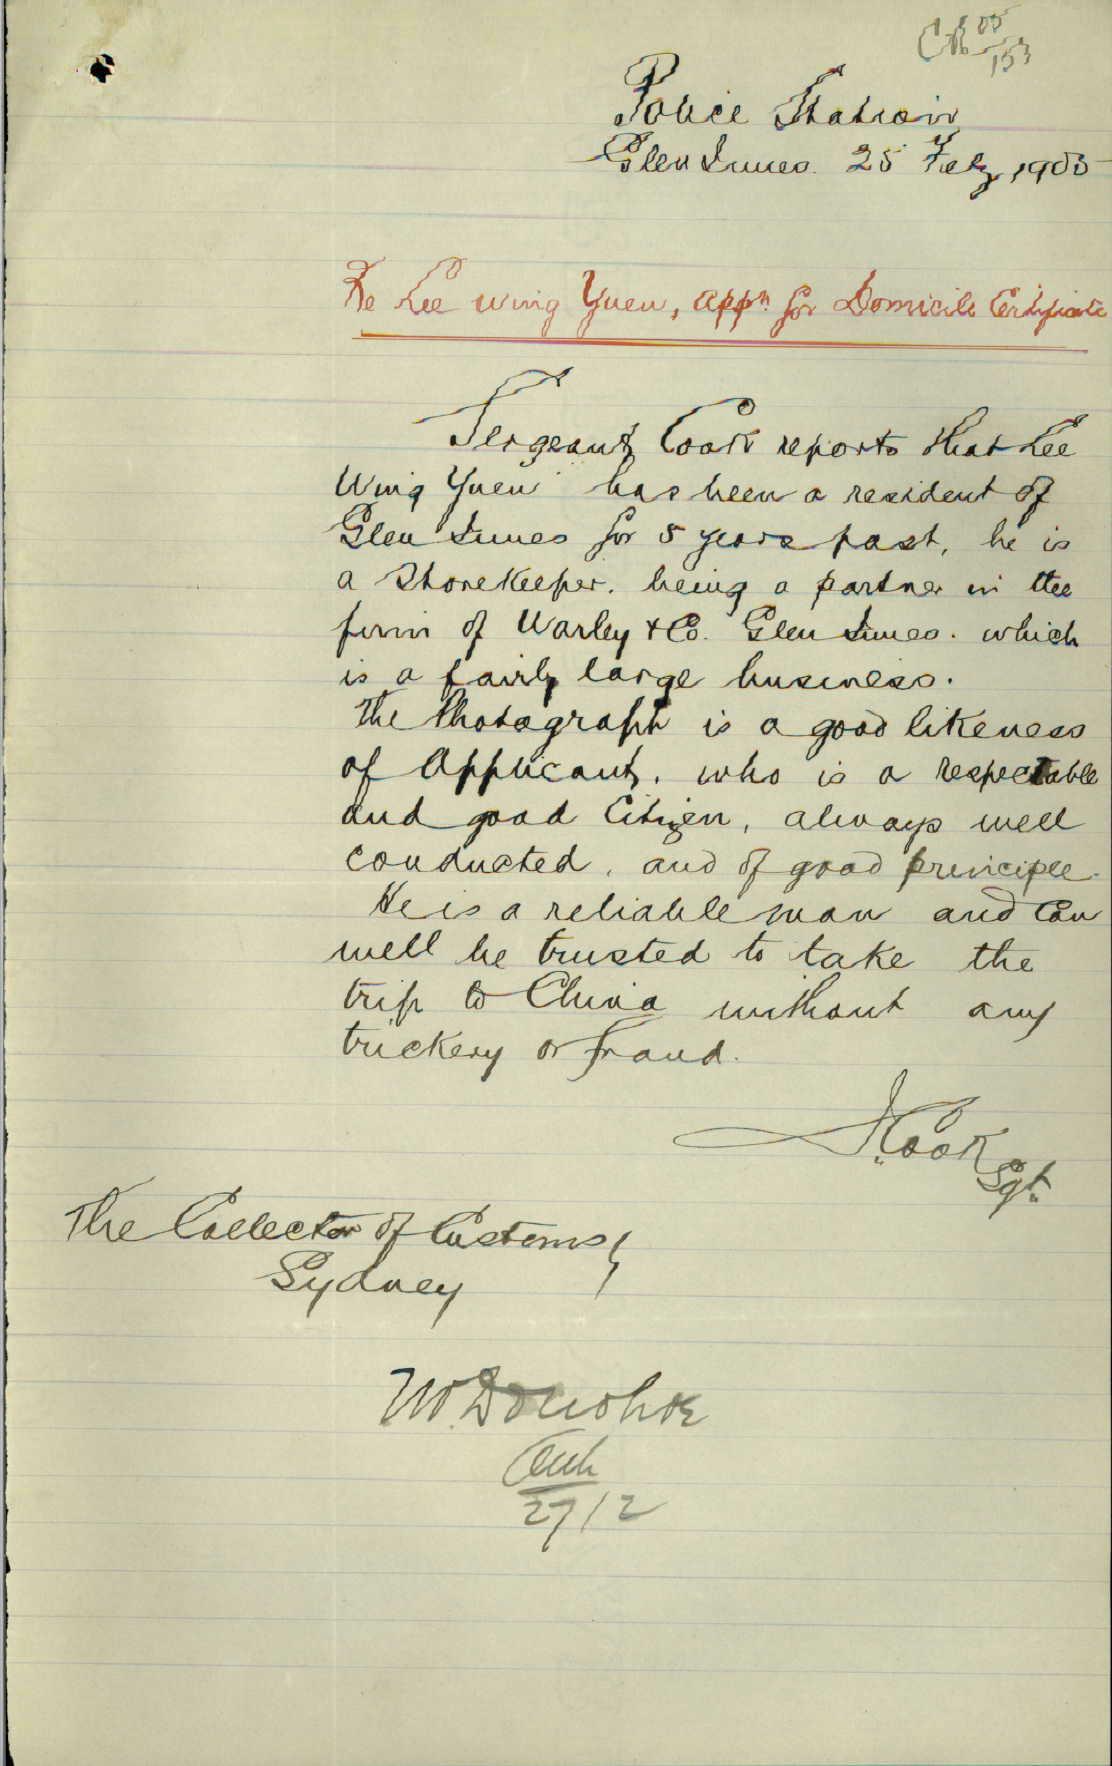 05
153
Police Station
Glen Innes. 25 Feby 1905
Re Lee Wing Yuen, appn. for Domicile Certificate
Sergeant Cook reports that Lee
Wing Yuen has been a resident of
Glen Innes for 5 years past, he is
a Storekeeper. being a partner in the
firm of Warley & Co. Glen Innes. which
is a fairly large business.
The Photograph is a good likeness
of Applicant, who is a respectable
and good Citizen, always well
conducted, and of good principle.
He is a reliable man and can
well be trusted to take the
trip to China without any
trickery or fraud.
Cook
Sgt.
The Collector of Customs
Sydney
Donohoe
27/2